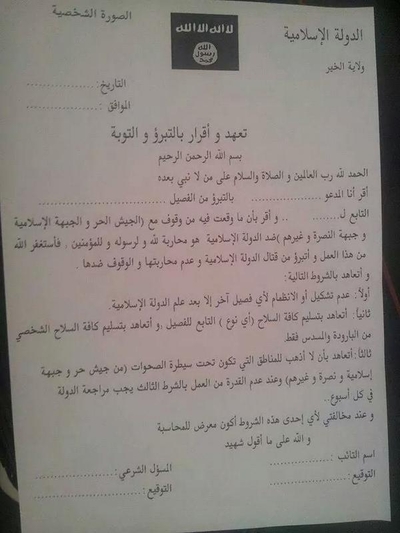 الدولة الإسلامية
ولاية الخير
لا اله الا الله
الله
رسول
محمد
الصورة الشخصية
التاريخ:....................
الموافق:....................
تعهد و أقرار بالتبرؤ و التوبة
بسم الله الرحمن الرحيم
الحمد لله رب العالمين و الصلاة والسلام على من لا نبي بعده
أقر أنا المدعو .................... بالتبرؤ من الفصيل ..............................
التابع ل.......... .. و أقر بأن ما وقعت فيه من وقوف مع (الجيش الحر و الجبهة الإسلامية
و جبهة النصرة و غيرهم )ضد الدولة الإسلامية هو محاربة لله و لرسوله و للمؤمنين , فأستغفر الله
من هذا العمل و أتبرؤ من قتال الدولة الإسلامية و عدم محاربتها و الوقوف ضدها .
و أتعاهد بالشروط التالية:
أولاً: عدم تشكيل أو الانظمام لأي فصيل آخر إلا بعد علم الدولة الإسلامية.
ثانياً: أتعاهد بتسليم كافة السلاح (أي نوع ) التابع للفصيل ,و أتعاهد بتسليم كافة السلاح الشخصي
من البارودة والمسدس فقط
ثالثاً:أتعاهد بأن لا أذهب للمناطق التي تكون تحت سيطرة الصحوات (من جيش حر و جبهة
إسلامية و نصرة و غيرهم) وعند عدم القدرة من العمل بالشرط الثالث يجب مراجعة الدولة
في كل أسبوع..
و عند مخالفتي لأي إحدى هذه الشروط أكون معرض للمحاسبة
و الله على ما أقول شهيد
اسم التائب :....................
المسؤل الشرعي:....................
التوقيع :....................
التوقيع:....................